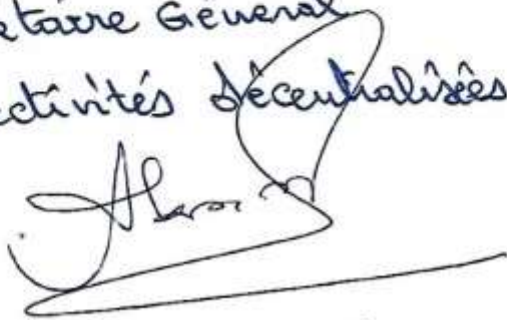 etaire Général
ectivités décentralisées